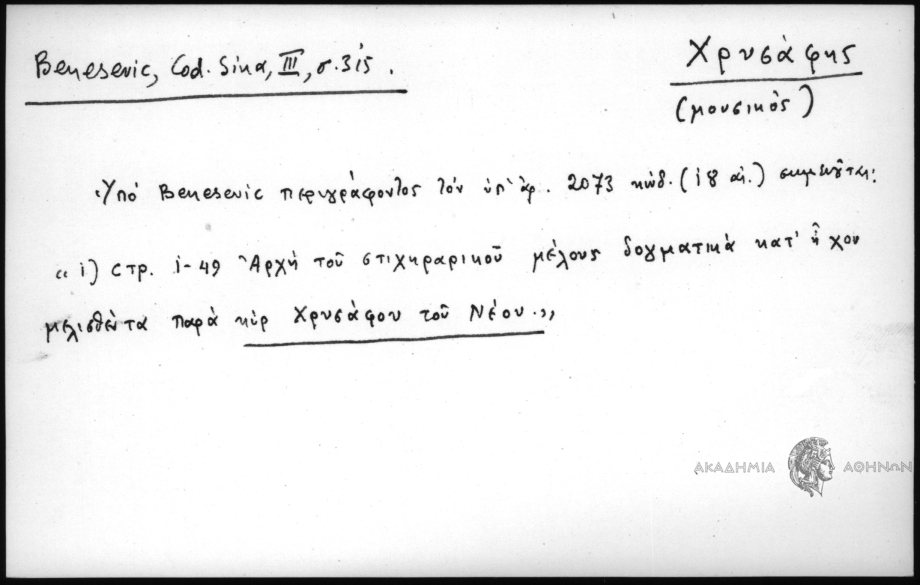 Benesevic, Cod. Sina, III, σ. 315.
Χρυσάφης
(μουσικός)
Ὑπό Benesevic περιγράφοντος τόν ὑπ' ἀρ. 2073 κώδ. (18 αἰ.) σημειοῦται:
«1) Στρ. 1-49 Ἀρχή τοῦ στιχηραρικοῦ μέλους δογματικά κατ' ἦχον
μελισθέντα παρά κύρ Χρυσάφου τοῦ Νέου.»
ΑΚΑΔΗΜΙΑ ΑΘΗΝΩΝ